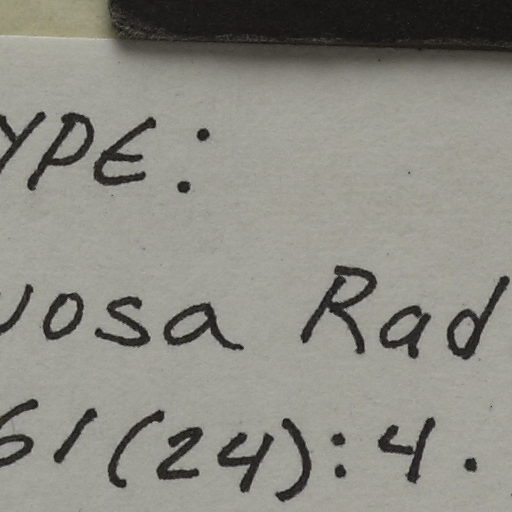 YPE:
uosa Rad
61(24):4.